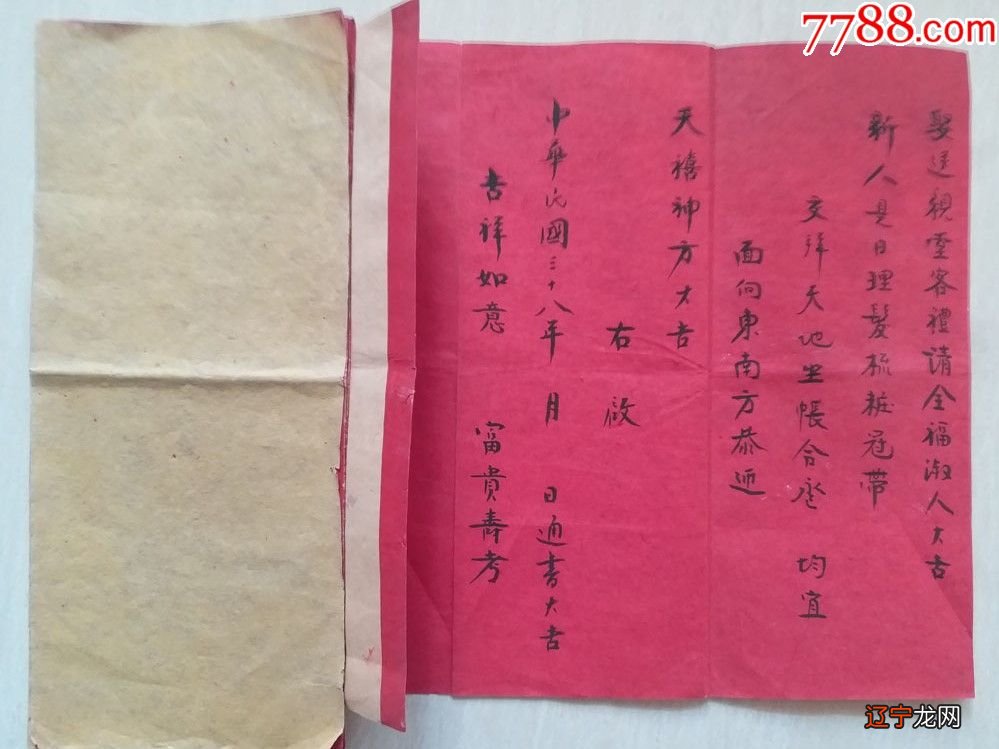 娶送親堂客禮請全福淑人大吉
新人是日理髮梳粧冠帶
交拜天地坐帳合卺 均宜
面向東南方恭迎
天禧神方大吉
右啟
中華民國三十八年 月 日通書大吉
吉祥如意 富貴壽考
7788.com
辽宁龙网